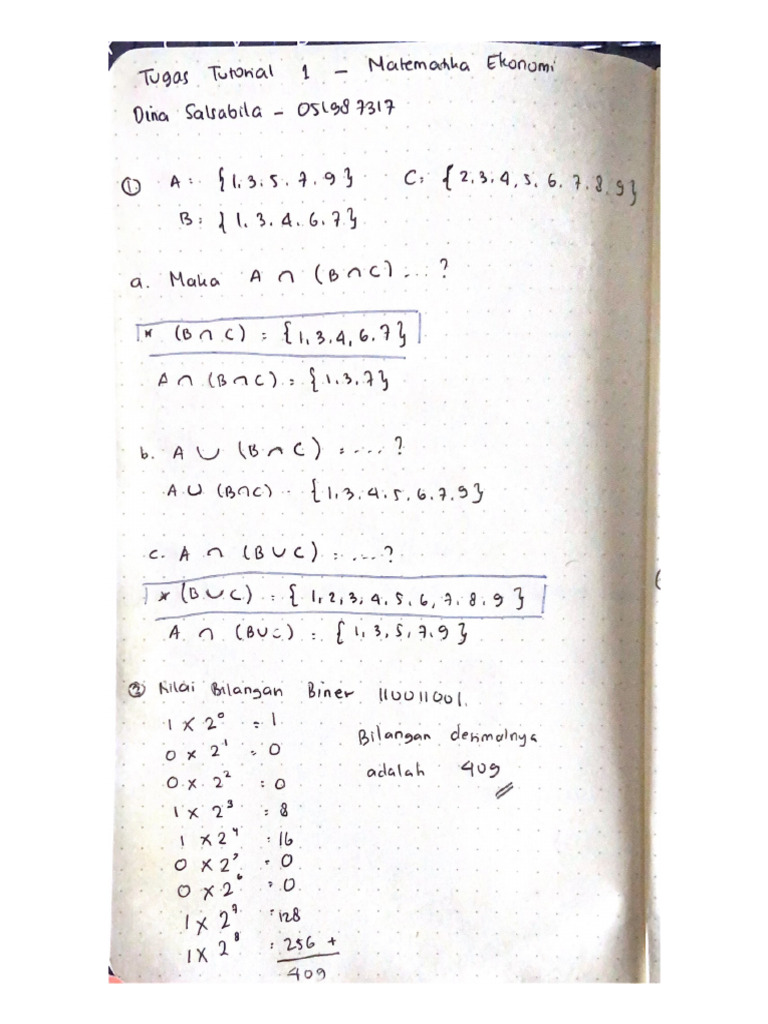 Tugas Tutorial 1 - Matematika Ekonomi
Dina Salsabila - 051987317
① A : {1, 3, 5, 7, 9} C : {2, 3, 4, 5, 6, 7, 8, 9}
B : {1, 3, 4, 6, 7}
a. Maka A ∩ (B ∩ C) ... ?
* (B ∩ C) = {1, 3, 4, 6, 7}
A ∩ (B ∩ C) = {1, 3, 7}
b. A ∪ (B ∩ C) = .... ?
A ∪ (B ∩ C) = {1, 3, 4, 5, 6, 7, 9}
c. A ∩ (B ∪ C) = .... ?
* (B ∪ C) = {1, 2, 3, 4, 5, 6, 7, 8, 9}
A ∩ (B ∪ C) = {1, 3, 5, 7, 9}
② Nilai Bilangan Biner 110011001.
1 × 2⁰ = 1
0 × 2¹ = 0
0 × 2² = 0
1 × 2³ = 8
1 × 2⁴ = 16
0 × 2⁵ = 0
0 × 2⁶ = 0
1 × 2⁷ = 128
1 × 2⁸ = 256 +
409
Bilangan desimalnya
adalah 409